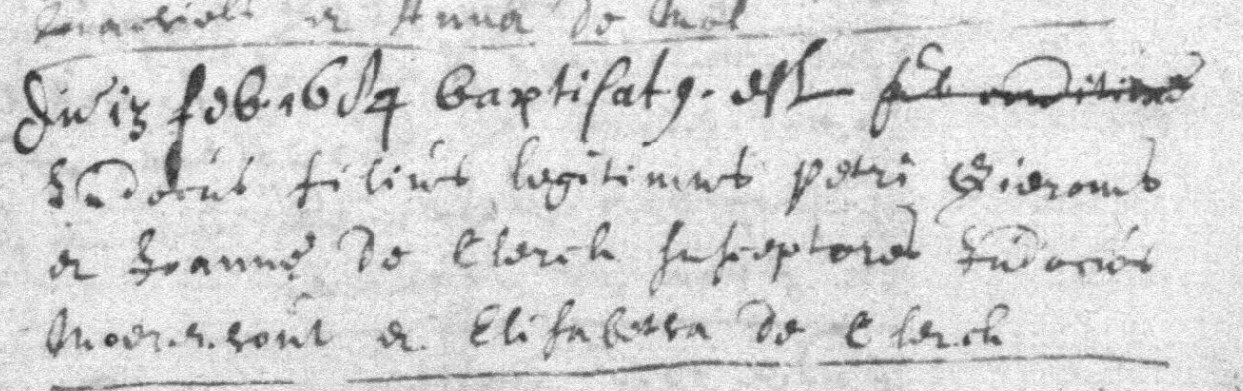 et Anna de Mol
Die 13 feb. 1684 baptisat9. est sub conditione
Judocus filius legitimus petri
et Joannę de Clerck susceptores Judocus
et Elisabetha de Clerck